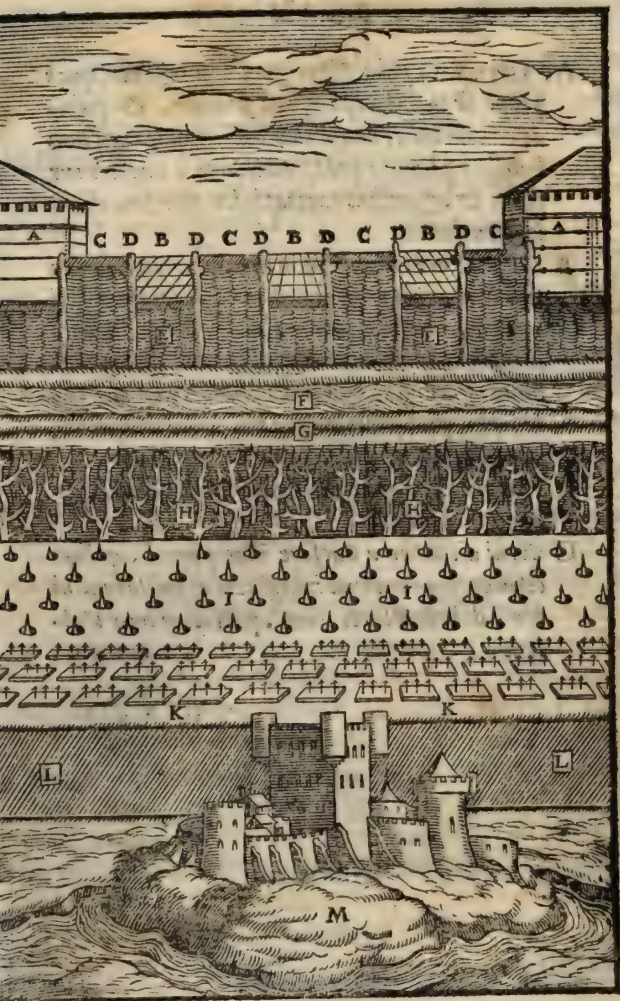 A A
C D B D C D B D C D B D C
E E
F
G
H H
I I
K K
L L
M